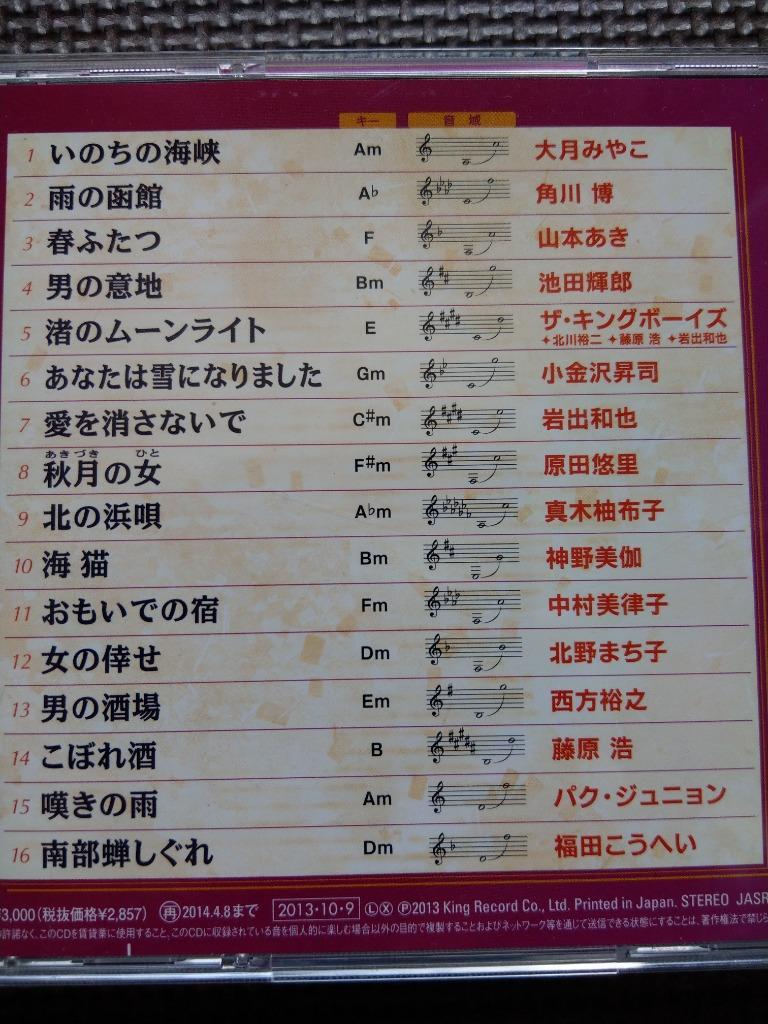 キー 音域
1 いのちの海峡 Am 大月みやこ
2 雨の函館 A♭ 角川 博
3 春ふたつ F 山本あき
4 男の意地 Bm 池田輝郎
5 渚のムーンライト E ザ・キングボーイズ
✦北川裕二 ✦藤原 浩 ✦岩出和也
6 あなたは雪になりました Gm 小金沢昇司
7 愛を消さないで C#m 岩出和也
あきづき ひと
8 秋月の女 F#m 原田悠里
9 北の浜唄 A♭m 真木柚布子
10 海猫 Bm 神野美伽
11 おもいでの宿 Fm 中村美律子
12 女の倖せ Dm 北野まち子
13 男の酒場 Em 西方裕之
14 こぼれ酒 B 藤原 浩
15 嘆きの雨 Am パク・ジュニョン
16 南部蝉しぐれ Dm 福田こうへい
3,000(税抜価格¥2,857) 再 2014.4.8まで 2013・10・9 Ⓛ Ⓧ Ⓟ2013 King Record Co., Ltd. Printed in Japan. STEREO JASR
許諾なく、このCDを賃貸業に使用すること、このCDに収録されている音を個人的に楽しむ場合以外の目的で複製することおよびネットワーク等を通じて送信できる状態にすることは、著作権法で禁じら